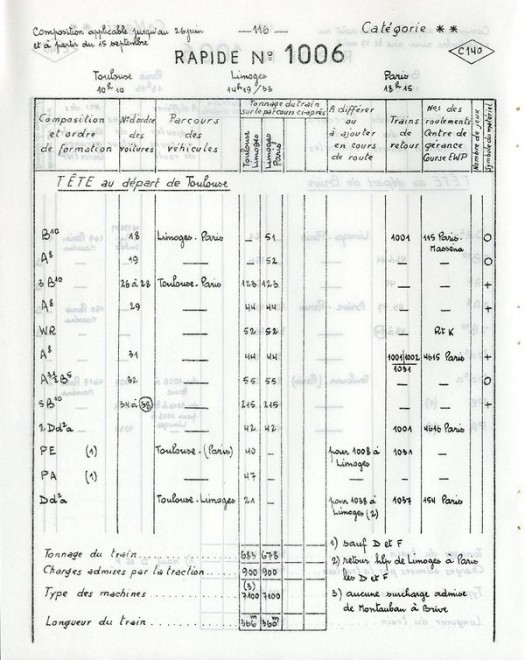 Composition applicable jusqu'au 26 juin
et à partir du 15 septembre
— 116 —
Catégorie ✶✶
RAPIDE Nº 1006
C140
Toulouse Limoges Paris
10h10 14h19/33 18h15
Composition et ordre de formation | Nº d'ordre des voitures | Parcours des véhicules | Tonnage du train sur le parcours ci-après | A différer ou à ajouter en cours de route | Trains de retour | Nos des roulements Centre de gérance Course EWP | Nombre de jeux | Symbole du matériel
Toulouse Limoges | Limoges Paris
TÊTE au départ de Toulouse
B10 18 Limoges-Paris — 51 — 1001 115 Paris-Massena O
A8 19 — — 52 — — — O
3 B10 26 à 28 Toulouse-Paris 123 123 — — — +
A8 29 — 44 44 — — — +
WR — — 52 52 — — Rt K
A8 31 — 44 44 — 1001 1002 1031 4615 Paris +
A3½B5 32 — 55 55 — — — O
5B10 34 à 38 — 215 215 — — — +
2 Dd²a — 42 42 — 1001 4616 Paris
PE (1) Toulouse-(Paris) 40 — pour 1008 à Limoges 1031 —
PA (1) — 47 — — — —
Dd²a Toulouse-Limoges 21 — pour 1038 à Limoges (2) 1037 154 Paris
Tonnage du train 683 678
Charges admises par la traction 900 900
Type des machines (3) 7100 7100
Longueur du train 366m 360m
1) sauf D et F
2) retour hlp de Limoges à Paris
les D et F
3) aucune surcharge admise
de Montauban à Brive